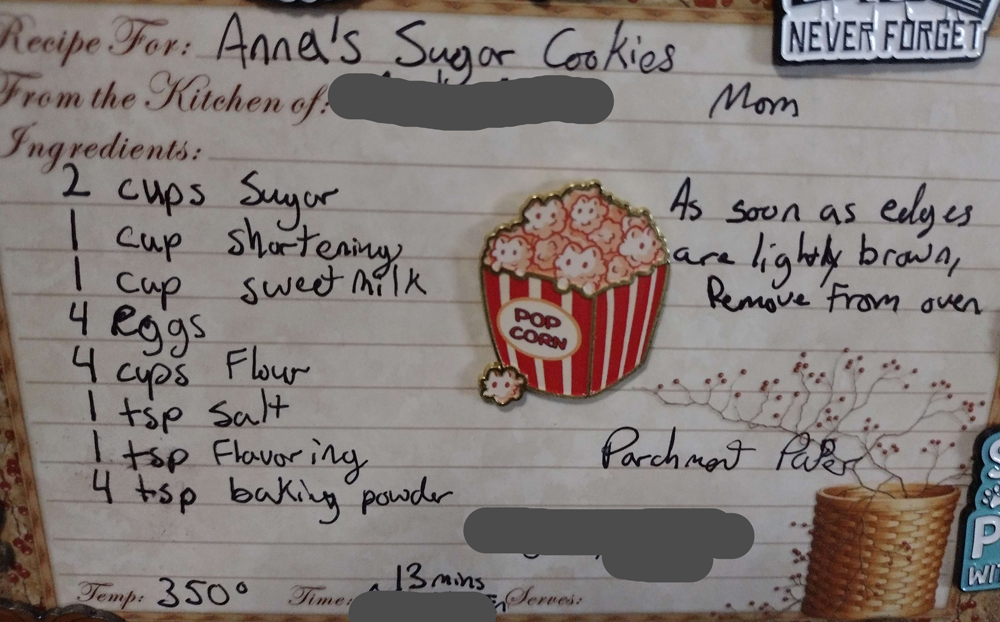 NEVER FORGET
Recipe For: Anna's Sugar Cookies
From the Kitchen of: Mom
Ingredients:
2 cups Sugar
1 cup shortening
1 cup sweet milk
4 eggs
4 cups Flour
1 tsp salt
1 tsp Flavoring
4 tsp baking powder
As soon as edges
are lightly brown,
Remove From oven
POP
CORN
Parchment Paper
Temp: 350° Time: 13 mins Serves: